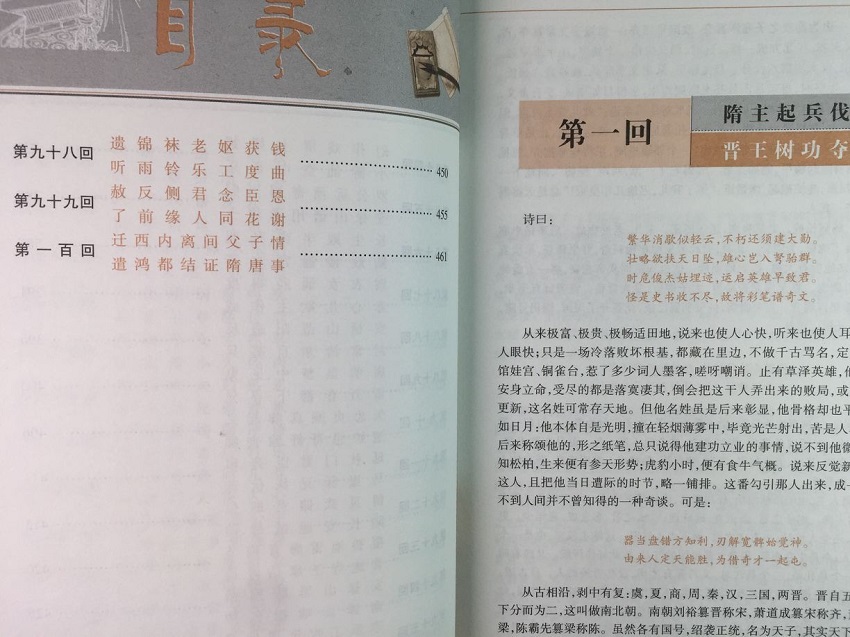 目录
第九十八回 遗锦袜老妪获钱
听雨铃乐工度曲 450
第九十九回 赦反侧君念臣恩
了前缘人同花谢 455
第一百回 迁西内离间父子情
遣鸿都结证隋唐事 461
第一回
隋主起兵伐
晋王树功夺
诗曰：
繁华消歇似轻云，不朽还须建大勋。
壮略欲扶天日坠，雄心岂入驽骀群。
时危俊杰姑埋迹，运启英雄早致君。
怪是史书收不尽，故将彩笔谱奇文。
从来极富、极贵、极畅适田地，说来也使人心快，听来也使人耳
人眼快；只是一场冷落败坏根基，都藏在里边，不做千古骂名，定
馆娃宫、铜雀台，惹了多少词人墨客，嗟呀嘲诮。止有草泽英雄，他
安身立命，受尽的都是落寞凄其，倒会把这干人弄出来的败局，或
更新，这名姓可常存天地。但他名姓虽是后来彰显，他骨格却也平
如日月：他本体自是光明，撞在轻烟薄雾中，毕竟光芒射出，苦是人
后来称颂他的，形之纸笔，总只说得他建功立业的事情，说不到他微
知松柏，生来便有参天形势；虎豹小时，便有食牛气概。说来反觉新
这人，且把他当日遭际的时节，略一铺排。这番勾引那人出来，成
不到人间并不曾知得的一种奇谈。可是：
器当盘错方知利，刃解宽髀始觉神。
由来人定天能胜，为借奇才一起屯。
从古相沿，剥中有复：虞，夏，商，周，秦，汉，三国，两晋。晋自五
下分而为二，这叫做南北朝。南朝刘裕篡晋称宋，萧道成篡宋称齐，
梁，陈霸先篡梁称陈。虽然各有国号，绍袭正统，名为天子，其实天下